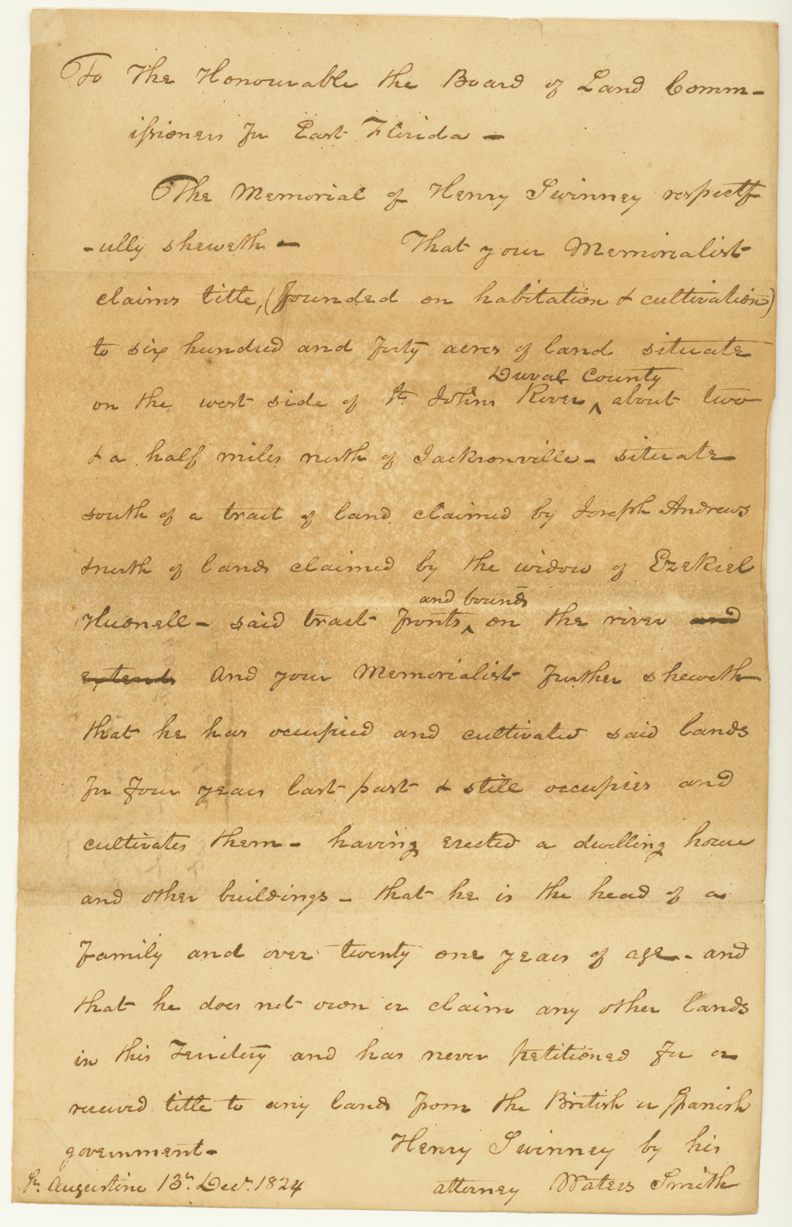 To The Honourable the Board of Land Comm-
issioners for East Florida -
The Memorial of Henry Swinney respectf
-ully sheweth - That your Memorialist
claims title, (founded on habitation & cultivation)
to six hundred and forty acres of land situate
Duval County
on the west side of St. Johns River ^ about two
& a half miles north of Jacksonville - situate
south of a tract of land claimed by Joseph Andrews
& north of lands claimed by the widow of Ezekiel
and bounds
- said tract fronts ^ on the river and
extends And your Memorialist further sheweth
that he has occupied and cultivated said lands
for four years last past & still occupies and
cultivates them - having erected a dwelling house
and other buildings - that he is the head of a
Family and over twenty one years of age - and
that he does not own or claim any other lands
in this Territory and has never petitioned for or
received title to any lands from the British or Spanish
government - Henry Swinney by his
St. Augustine 13th. Decr. 1824 attorney Waters Smith